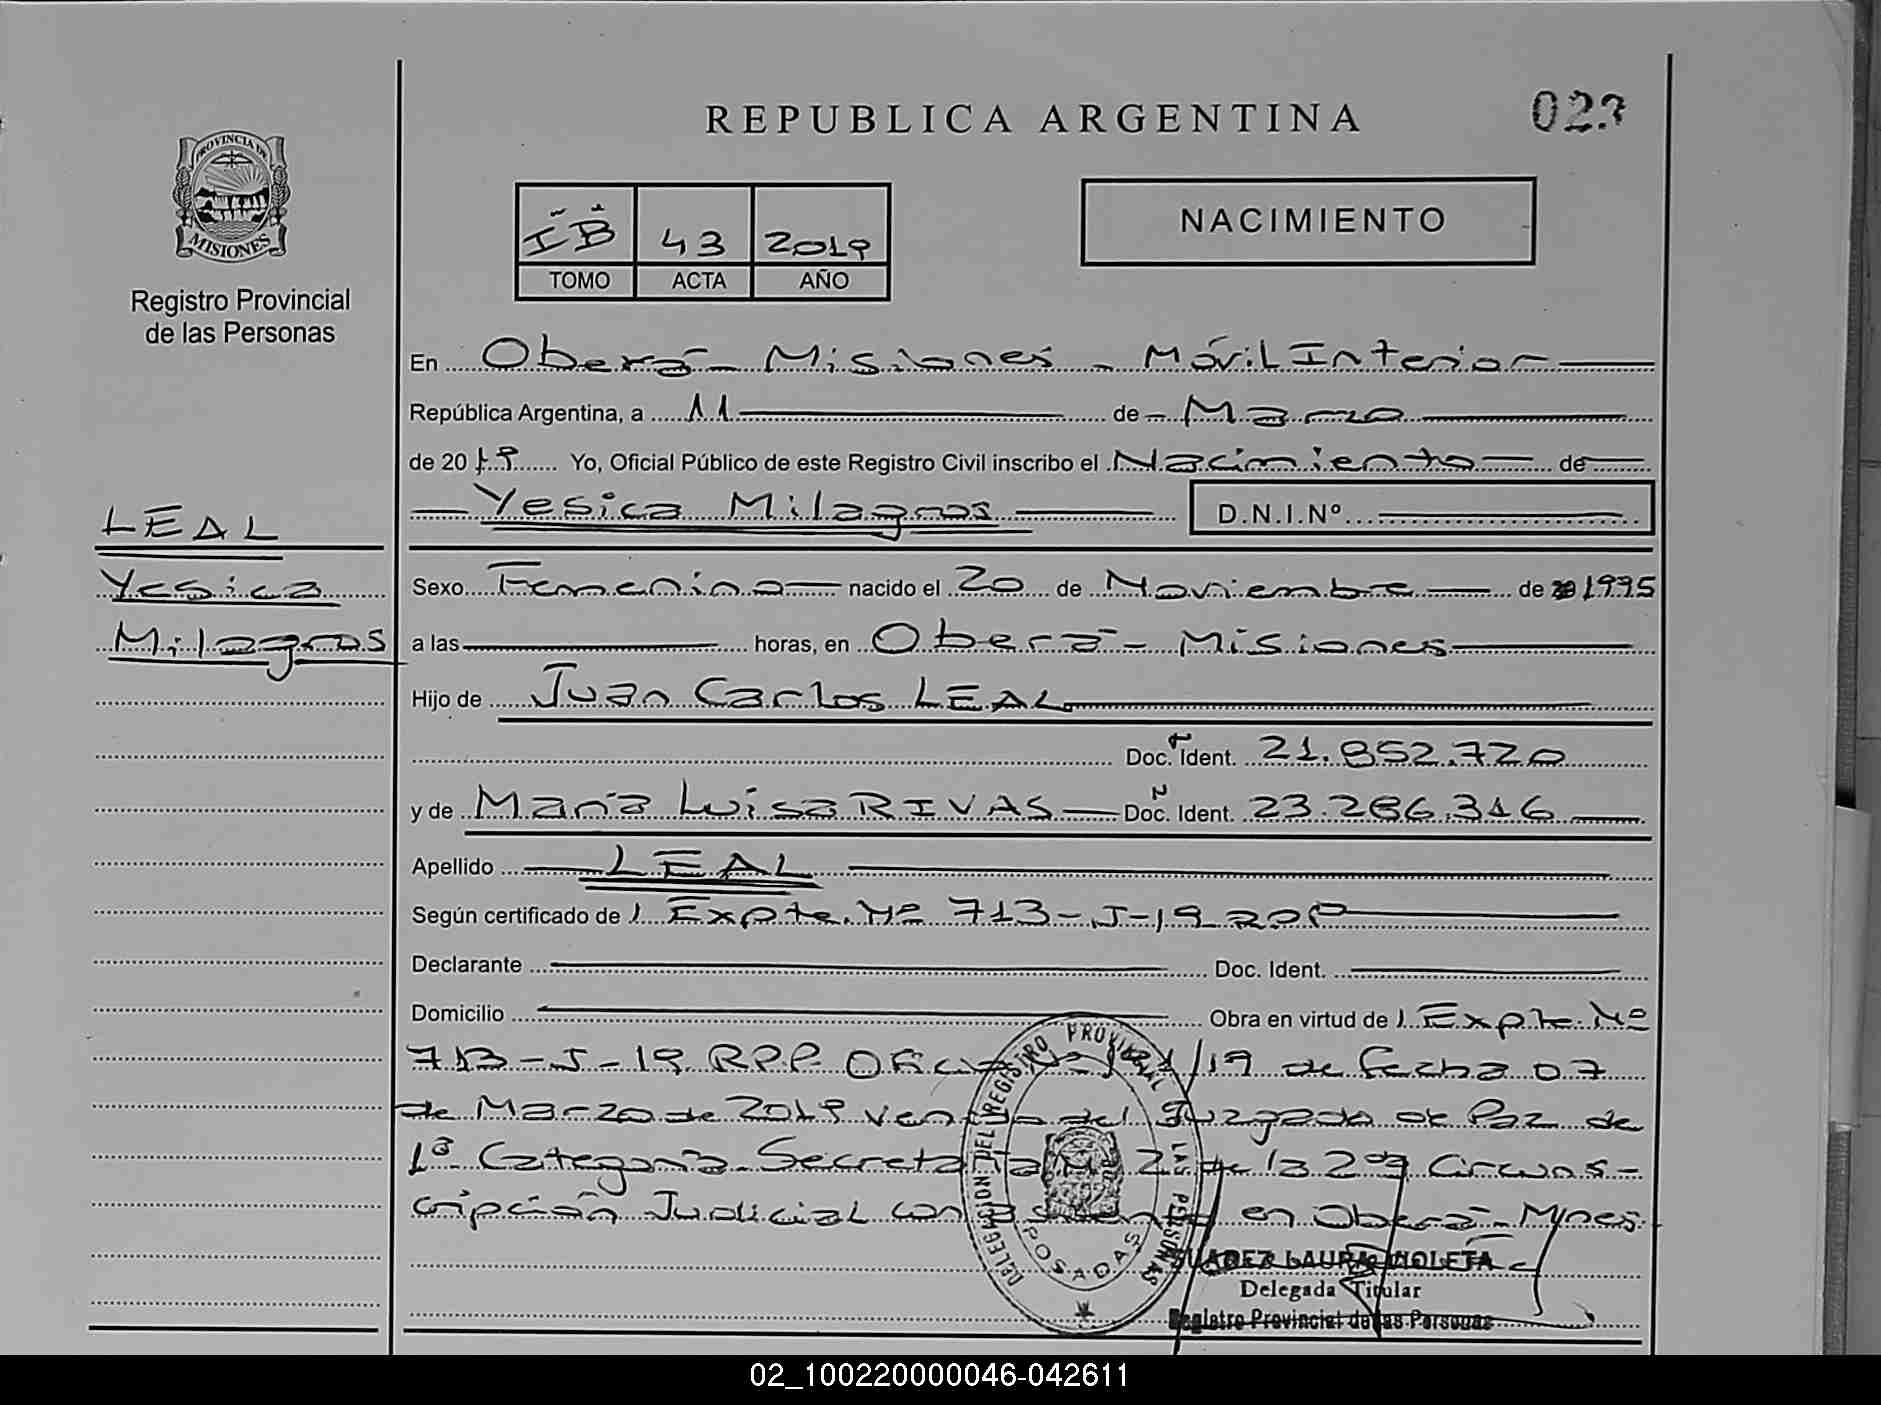 REPUBLICA ARGENTINA
023
PROVINCIA DE
MISIONES
Registro Provincial
de las Personas
IB 43 2019
TOMO ACTA AÑO
NACIMIENTO
En Oberá - Misiones - Móvil Interior
República Argentina, a 11 de Marzo
de 2019 Yo, Oficial Público de este Registro Civil inscribo el Nacimiento de
Yesica Milagros D.N.I.Nº
LEAL
Yesica
Milagros
Sexo Femenino nacido el 20 de Noviembre de 1995
a las horas, en Oberá - Misiones
Hijo de Juan Carlos LEAL
Doc. Ident. 21.852.720
y de María Luisa RIVAS Doc. Ident. 23.286.316
Apellido LEAL
Según certificado de Expte. Nº 713-J-19 RPP
Declarante Doc. Ident.
Domicilio Obra en virtud de Expte. Nº
713-J-19 RPP. Oficio /19 de fecha 07
de Marzo de 2019 del Juzgado de Paz de
1ª Categoría Secretaría Nº 2 de la 2da Circuns-
cripción Judicial con en Oberá - Mnes.
DELEGACION DEL REGISTRO PROVINCIAL LAS PERSONAS
POSADAS
SUAREZ LAURA VIOLETA
Delegada Titular
Registro Provincial de las Personas
02_100220000046-042611